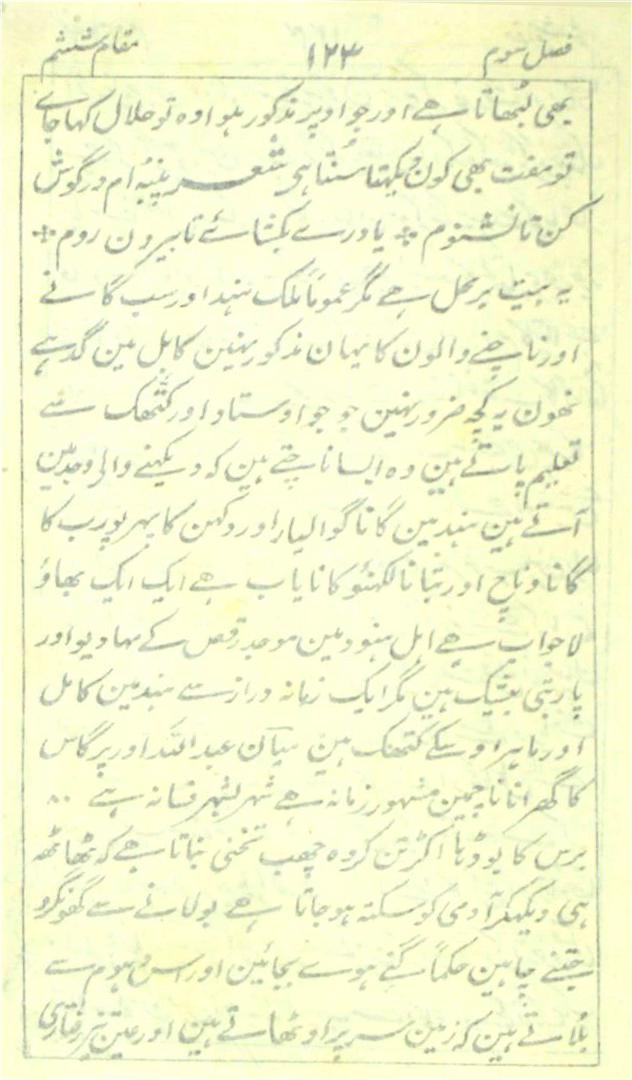 فصل سوم ۱۲۳ مقام ششم
بھی لبھاتا ہے اور جو اوپر مذکور ہوا وہ تو حلال کہا جاے
تو مفت بھی کون دیکھتا سنتا ہی شعر پنبہ ام در گوش
کن تا نشنوم ؞ یا درے بکشائے تا بیرون روم ؞
یہ بیت بر محل ہے مگر عموماً ملک ہند اور سب گانے
اور ناچنے والون کا یہان مذکور نہین کابل مین گدہے
نہون یہ کچہ ضرور نہین جو جو اوستاد اور کتھک سے
تعلیم پاتے ہین وہ ایسا ناچتے ہین کہ دیکہنے والی وجد مین
آتے ہین ہند مین گانا گوالیار اور دکہن کا پہر پورب کا
گانا و ناچ اور بتانا لکہنؤ کا نایاب ہے ایک ایک بھاؤ
لاجواب ہے اہل ہنود مین موجد رقص کے مہادیو اور
پاربتی بیشک ہین مگر ایک زمانہ دراز سے ہند مین کامل
اور ماہر اوسکے کتھک ہین میان عبداللہ اور پرگاس
کا گھرانا ناچ مین مشہور زمانہ ہے شہر بشہر فسانہ ہے ۸۰
برس کا بوڈہا اکڑ تن کر وہ چھب تختی بناتا ہے کہ ٹھاٹھہ
ہی دیکہکر آدمی کو سکتہ ہو جاتا ہے بولانے سے گھونگرو
جتنے چاہین حکماً گنے ہوے بجائین اور اس دہوم سے
بلاتے ہین کہ زمین سر پر اوٹھاتے ہین اور عین تیز رفتاری